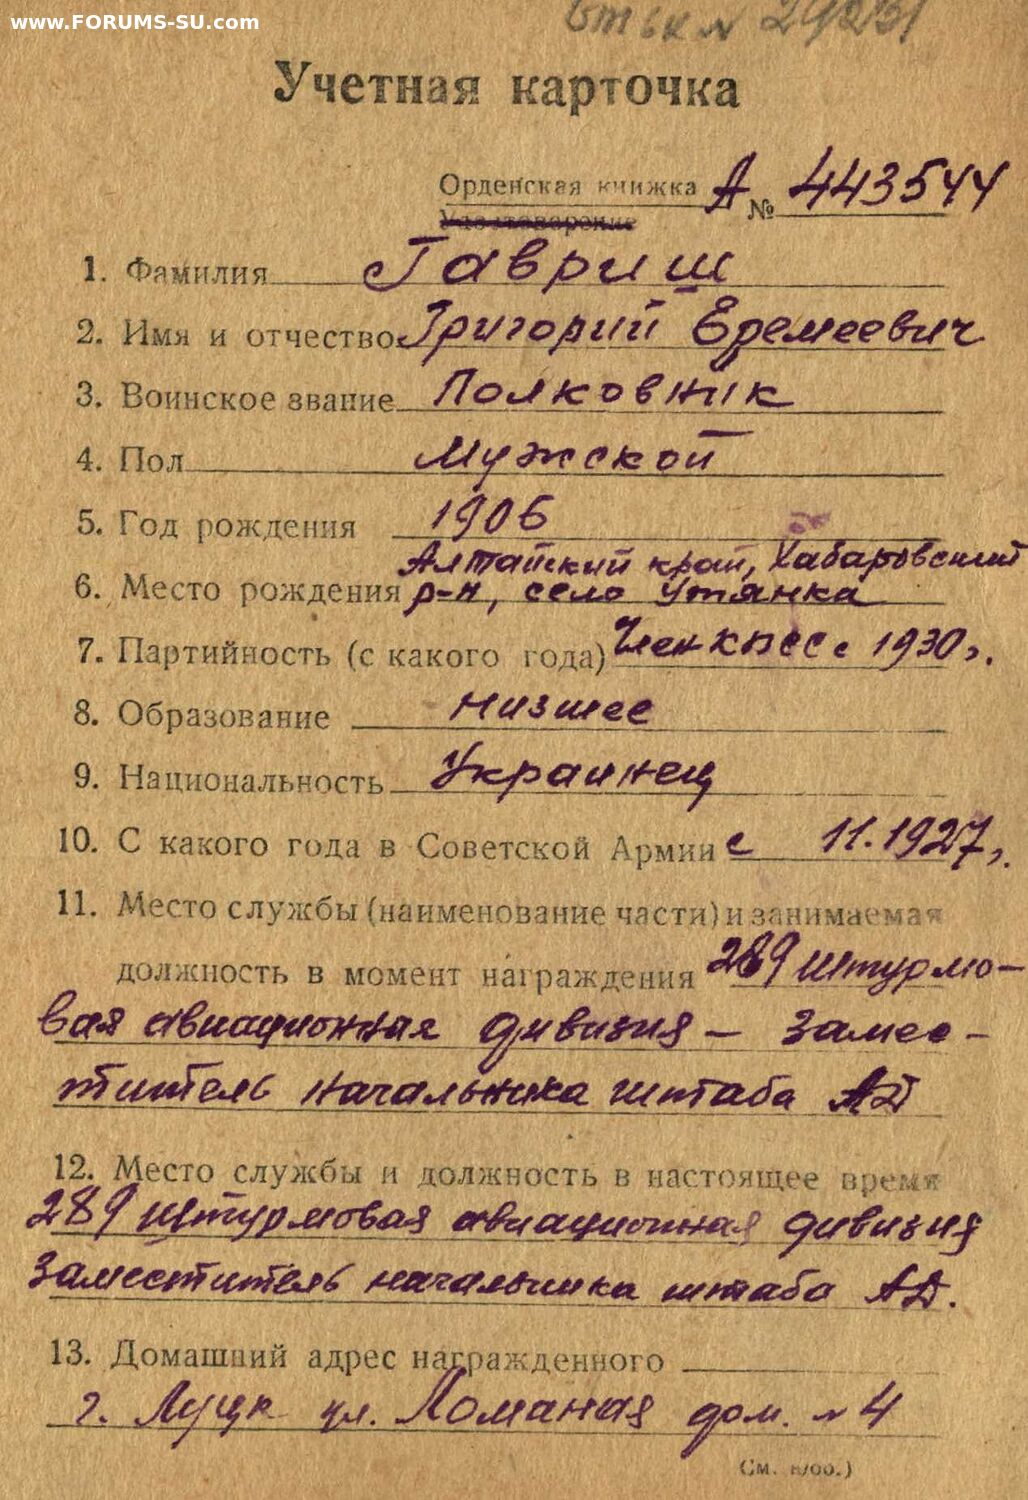 www.FORUMS-SU.com
Учетная карточка
Орденская книжка А № 443544
Удостоверение
1. Фамилия Гавриш
2. Имя и отчество Григорий Еремеевич
3. Воинское звание Полковник
4. Пол Мужской
5. Год рождения 1906
Алтайский край, Хабаровский
6. Место рождения р-н, село Утянка
7. Партийность (с какого года) Член КПСС с 1930 г.
8. Образование низшее
9. Национальность Украинец
10. С какого года в Советской Армии с 11.1927 г.
11. Место службы (наименование части) и занимаемая
должность в момент награждения 289 штурмо-
вая авиационная дивизия - заме-
ститель начальника штаба АД
12. Место службы и должность в настоящее время
289 штурмовая авиационная дивизия
Заместитель начальника штаба АД.
13. Домашний адрес награжденного
г. Луцк ул. Ломаная дом. № 4
(См. н/об.)